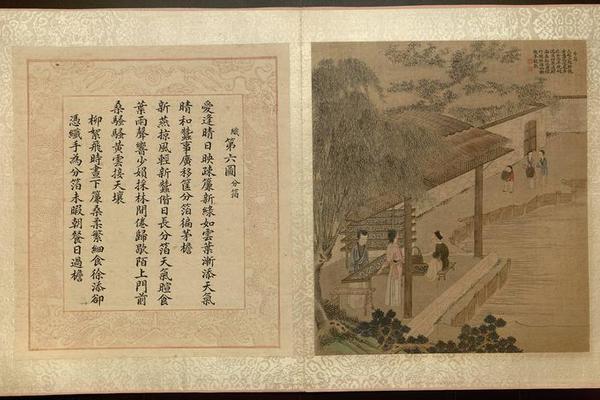 織第六圖分箔
愛逢晴日映疎簾新綠如雲葉漸添天氣
晴和蠶事廣移筐分箔徧茅檐
新燕掠風輕新蠶偕日長分箔天氣暄食
葉雨聲響少婦採林間倦歸歇陌上門前
桑騷騷黃雲接天壤
柳絮飛時晝下簾桑柔繁細食徐添卻
憑纖手為分箔未暇朝餐日過檐